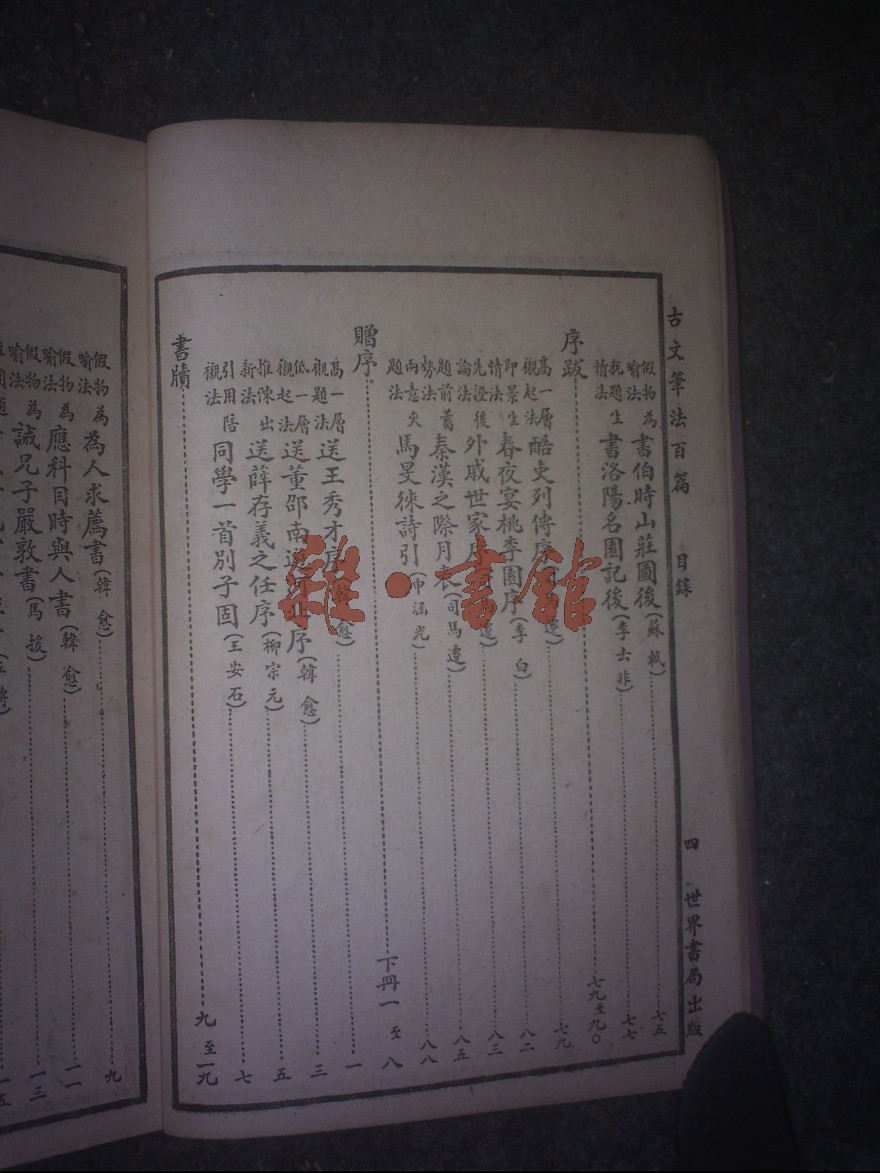 古文筆法百篇 目錄 四 世界書局出版
假物為喻法 書伯時山莊圖後(蘇軾) 七五
就題生情法 書洛陽名園記後(李士非) 七七
序跋 七九至九〇
高一層觀起法 酷吏列傳序 七九
即景生情法 春夜宴桃李園序(李白) 八二
先證後論法 外戚世家序 八三
題前蓄勢法 秦漢之際月表(司馬遷) 八五
兩意夾題法 馬旻徠詩引(申涵光) 八八
贈序 下冊一至八
高一層觀題法 送王秀才序(韓愈) 一
低一層觀起法 送董邵南遊 序(韓愈) 三
推陳出新法 送薛存義之任序(柳宗元) 五
引用陪觀法 同學一首別子固(王安石) 七
書牘 九至一九
假物為喻法 為人求薦書(韓愈) 九
假物為喻法 應科目時與人書(韓愈) 一一
假物為喻法 誡兄子嚴敦書(馬援) 一三
一五
雜·書館